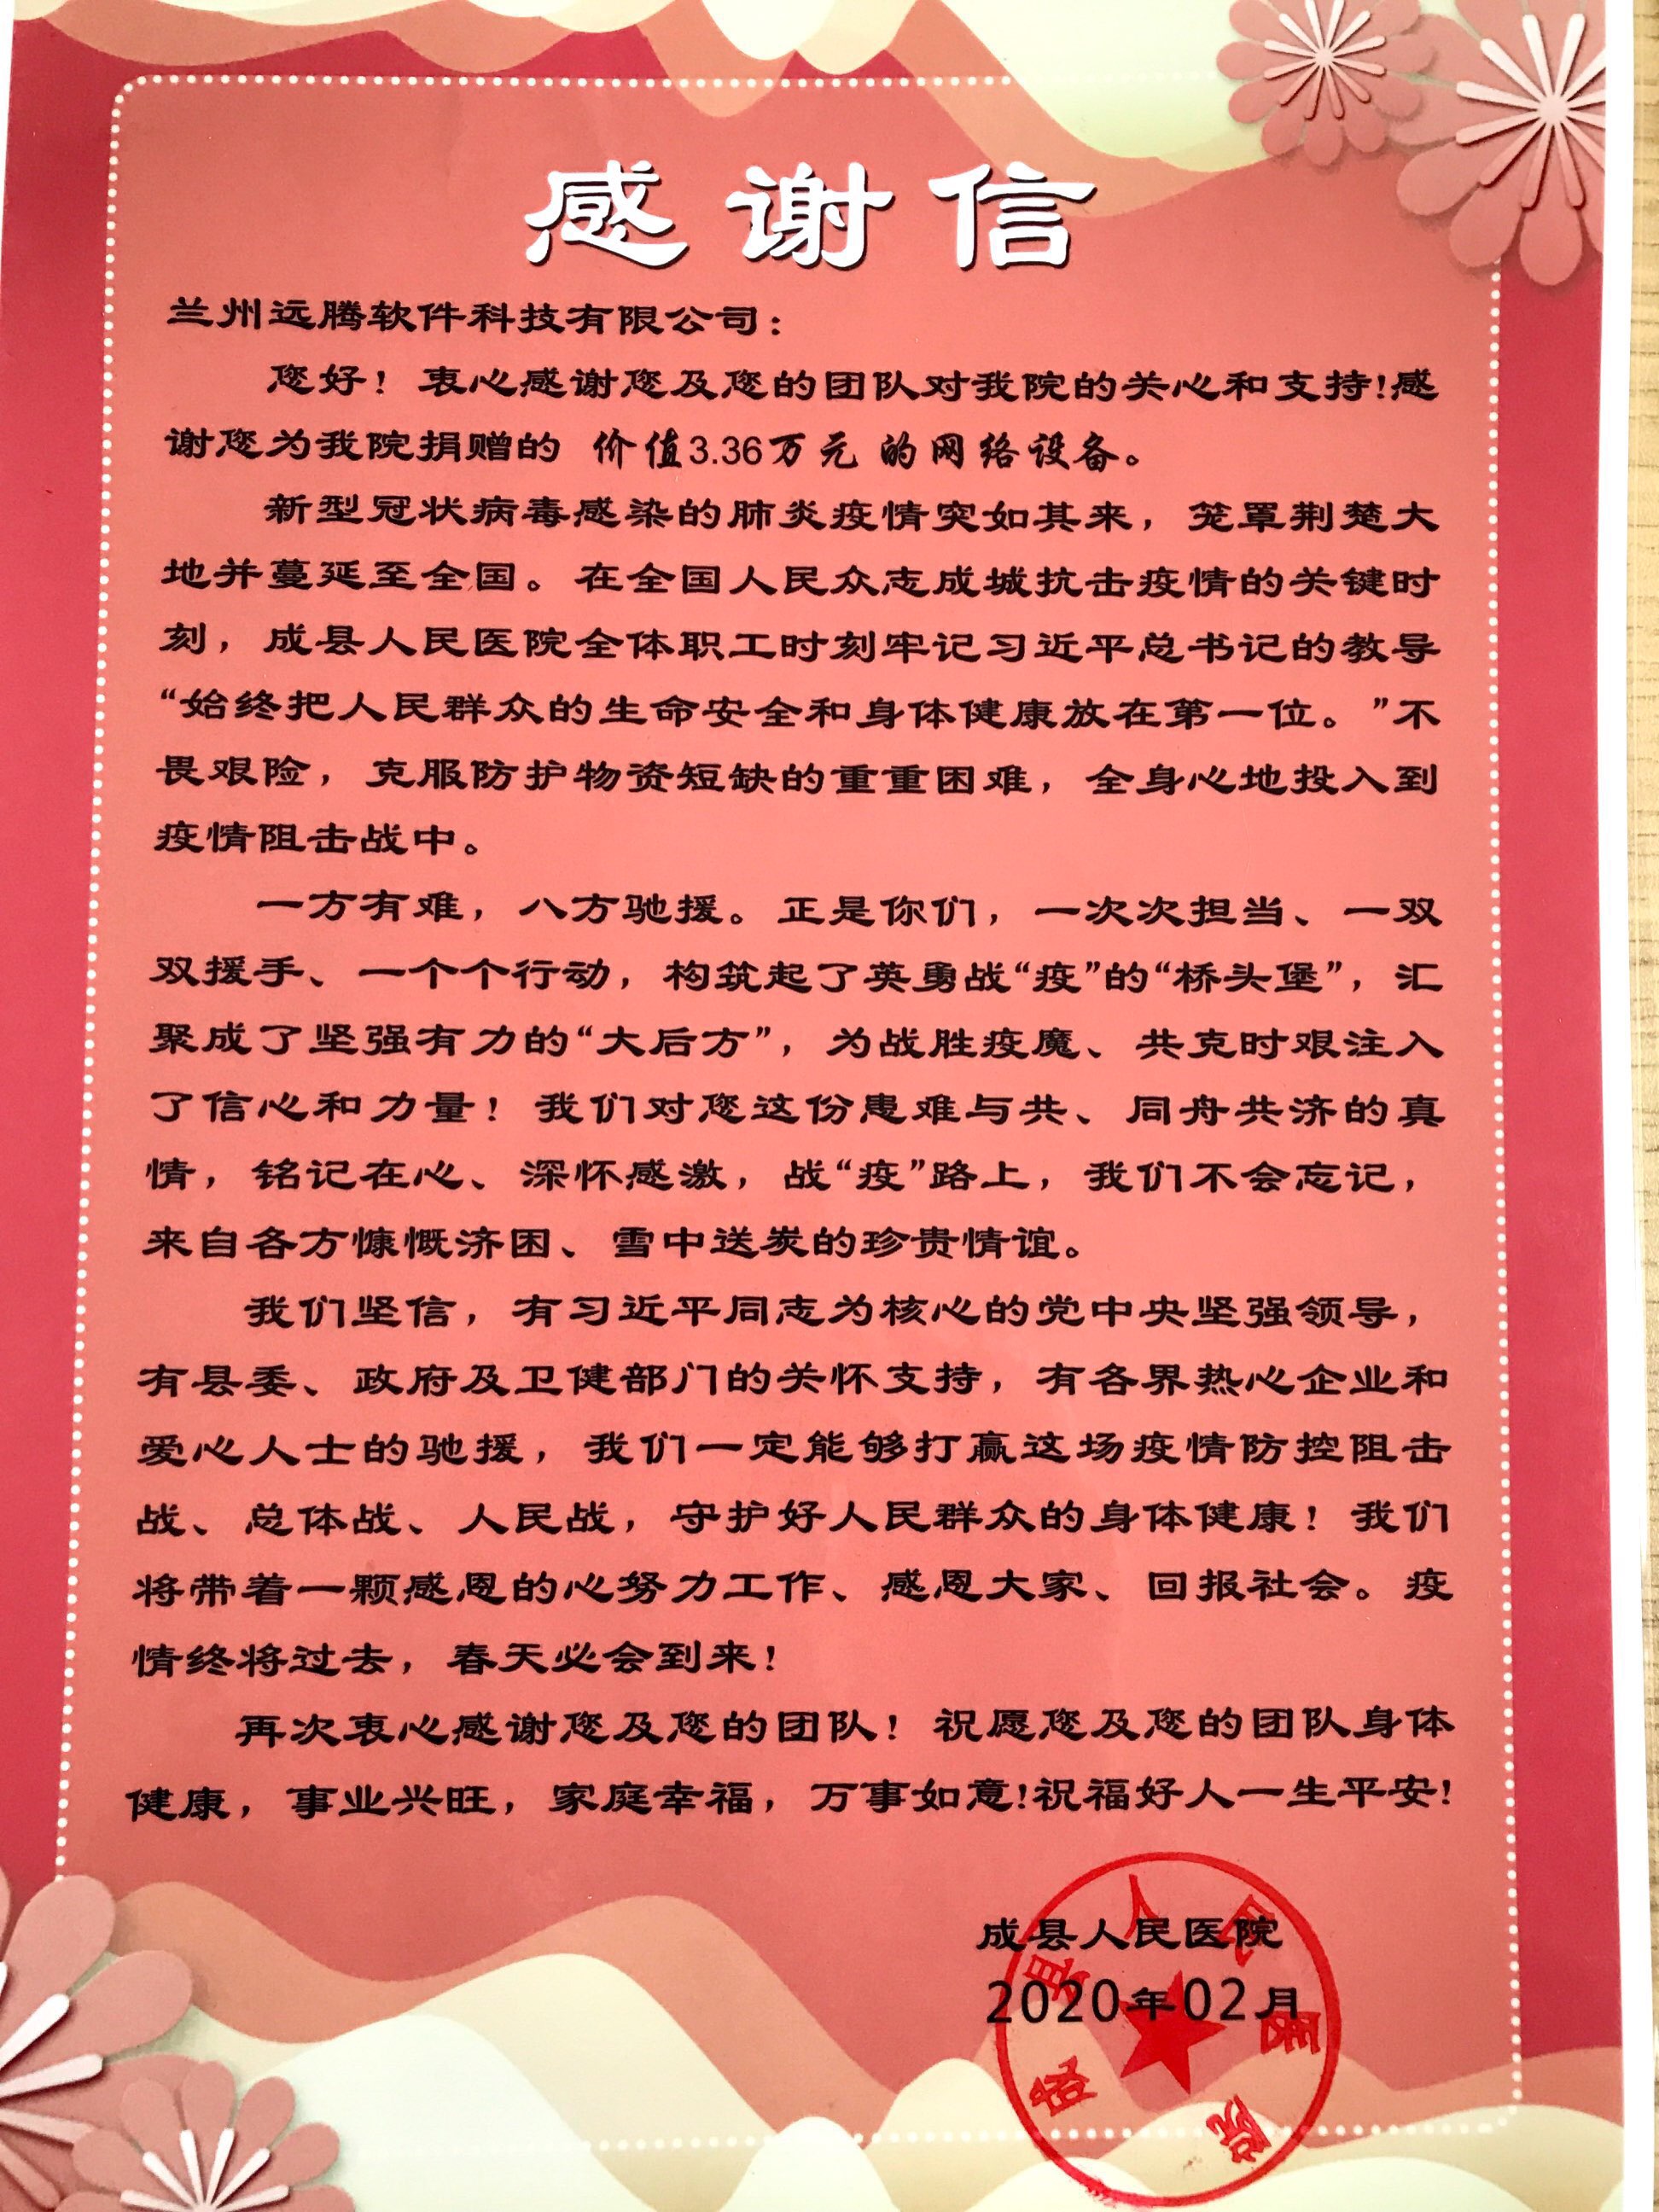 感谢信
兰州远腾软件科技有限公司：
您好！衷心感谢您及您的团队对我院的关心和支持!感
谢您为我院捐赠的 价值3.36万元 的网络设备。
新型冠状病毒感染的肺炎疫情突如其来，笼罩荆楚大
地并蔓延至全国。在全国人民众志成城抗击疫情的关键时
刻，成县人民医院全体职工时刻牢记习近平总书记的教导
“始终把人民群众的生命安全和身体健康放在第一位。”不
畏艰险，克服防护物资短缺的重重困难，全身心地投入到
疫情阻击战中。
一方有难，八方驰援。正是你们，一次次担当、一双
双援手、一个个行动，构筑起了英勇战“疫”的“桥头堡”，汇
聚成了坚强有力的“大后方”，为战胜疫魔、共克时艰注入
了信心和力量！我们对您这份患难与共、同舟共济的真
情，铭记在心、深怀感激，战“疫”路上，我们不会忘记，
来自各方慷慨济困、雪中送炭的珍贵情谊。
我们坚信，有习近平同志为核心的党中央坚强领导，
有县委、政府及卫健部门的关怀支持，有各界热心企业和
爱心人士的驰援，我们一定能够打赢这场疫情防控阻击
战、总体战、人民战，守护好人民群众的身体健康！我们
将带着一颗感恩的心努力工作、感恩大家、回报社会。疫
情终将过去，春天必会到来！
再次衷心感谢您及您的团队！祝愿您及您的团队身体
健康，事业兴旺，家庭幸福，万事如意!祝福好人一生平安!
成县人民医院
2020年02月
县人民医院